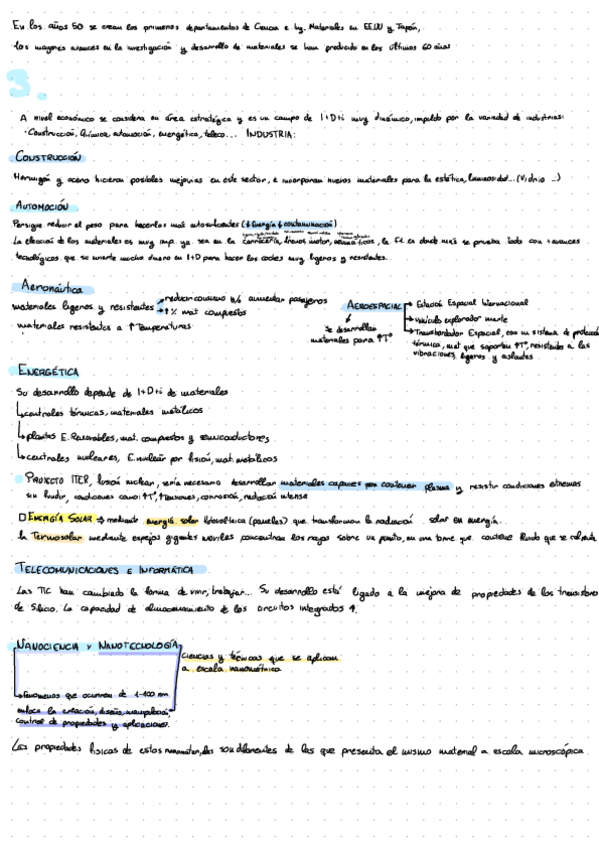 En los años 50 se crean los primeros departamentos de Ciencia e Ing. Materiales en EEUU y Japón,
los mayores avances en la investigación y desarrollo de materiales se han producido en los últimos 60 años
3.
A nivel económico se considera un área estratégica y es un campo de I+D+i muy dinámico, impuldo por la variedad de industrias:
·Construcción, Química, automoción, energética, teleco... INDUSTRIA:
CONSTRUCCIÓN
Hormigón y acero hicieron posibles mejorias en este sector, e incorporan nuevos materiales para la estética, luminosidad...(Vidrio ...)
AUTOMOCIÓN
Persigue reducir el peso para hacerlos más autosuficientes (↓ Energía ↓ contaminación)
La elección de los materiales es muy imp. ya sea en la carrocería, frenos, motor, neumáticos, la F1 es donde más se prueba todo con avances
tecnológicos que se invierte mucho dinero en I+D para hacer los coches muy ligeros y resistentes.
Aeronáutica
materiales ligeros y resistentes
→ reducir consumo y aumentar pasajeros
→ ↑% mat compuestos
materiales resistentes a ↑ Temperaturas
AEROESPACIAL
↓
Se desarrollan
materiales para ↑Tº
→ Estación Espacial Internacional
→ Vehículo explorador marte
→ Transbordador Espacial, con un sistema de protección
térmica, mat que soporten ↑Tº, resistentes a las
vibraciones, ligeros y aislantes.
ENERGÉTICA
Su desarrollo depende de I+D+i de materiales
↳ centrales térmicas, materiales metálicos
↳ plantas E. Renovables, mat. compuestos y semiconductores
↳ centrales nucleares, E. nuclear por fisión, mat. metálicos
PROYECTO ITER, fusión nuclear, sería necesario desarrollar materiales capaces de contener plasma y resistir condiciones extremas
sin fundir, condiciones como: ↑Tº, ↑tensiones, corrosión, radiación intensa
□ ENERGÍA SOLAR → mediante energía solar fotovoltaica (paneles) que transforman la radiación solar en energía.
La Termosolar mediante espejos gigantes moviles concentran los rayos sobre un punto, en una torre que contiene fluido que se calienta
TELECOMUNICACIONES E INFORMÁTICA
Las TIC han cambiado la forma de vivir, trabajar... Su desarrollo está ligado a la mejora de propiedades de los transistores
de Silicio. La capacidad de almacenamiento de los circuitos integrados ↑.
NANOCIENCIA Y NANOTECNOLOGÍA
ciencias y técnicas que se aplican
a escala nanométrica
→ fenómenos que ocurren de 1-100 nm
enfoca la creación, diseño, manipulación,
control de propiedades y aplicaciones.
Las propiedades físicas de estos nanomateriales son diferentes de las que presenta el mismo material a escala microscópica.